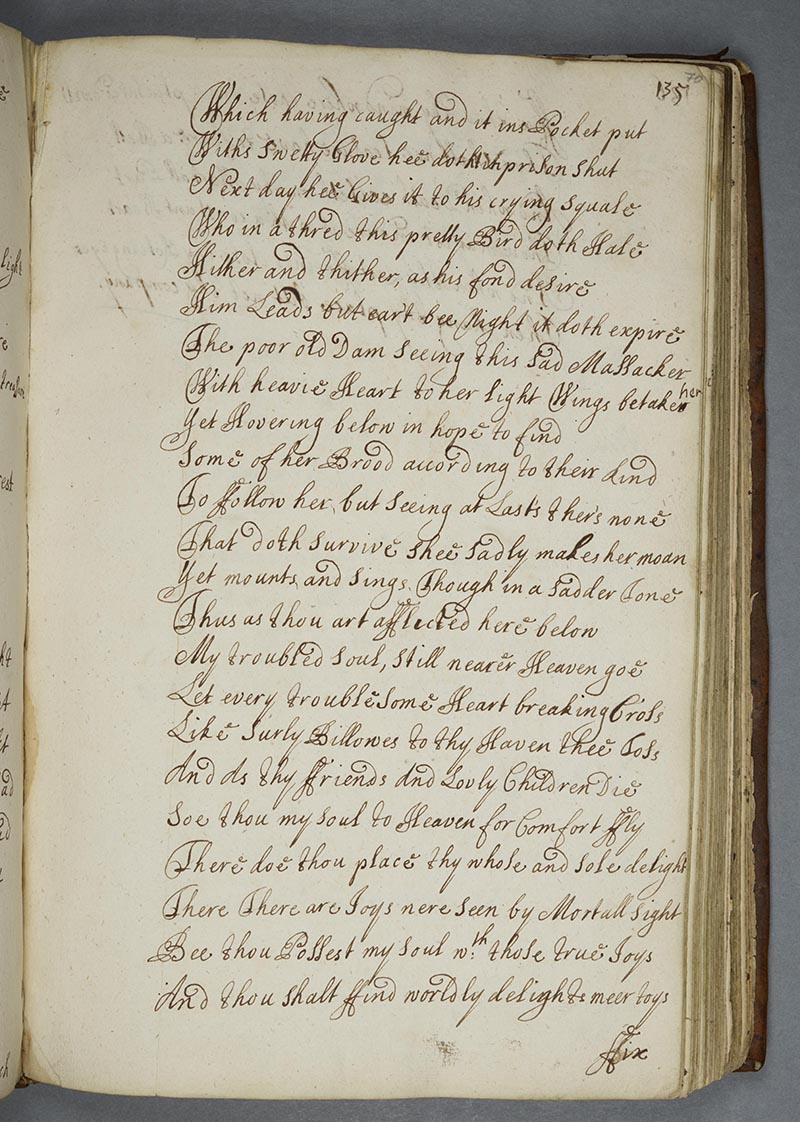 135
70
Which having caught and it ins Pocket put
Withs Swetty Glove hee doth prison shut
Next day hee Gives it to his crying squale
Who in a thred this pretty Bird doth Hale
Hither and thither, as his fond desire
Him Leads but ear't bee Night it doth expire
The poor old Dam Seeing this Sad Massacker
With heavie Heart to her light Wings betakes her
Yet Hovering below in hope to find
Some of her Brood according to their kind
To ffollow her, but Seeing at Last's ther's none
That doth survive shee Sadly makes her moan
Yet mounts, and Sings, Though in a Sadder Tone
Thus as thou art afflicted here below
My troubled soul, still nearer Heaven goe
Let every troubleSome Heart breaking Cross
Like Surly Billowes to thy Haven thee Toss
And As thy ffriends And Lovly Children Die
Soe thou my Soul to Heaven for Comfort ffly
There doe thou place thy whole and Sole delight
There There are Joys nere Seen by Mortall Sight
Bee thou Possest my Soul wth those true Joys
And thou shalt ffind worldly delights meer toys
ffix